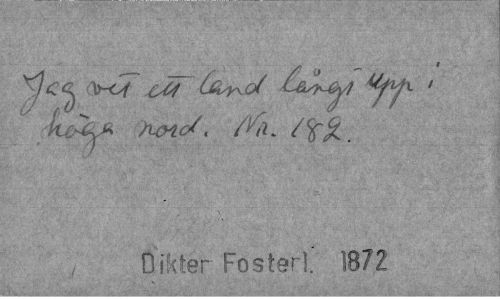 Jag vet ett land långt upp i
höga nord. Nr. 182.
Dikter Fosterl. 1872